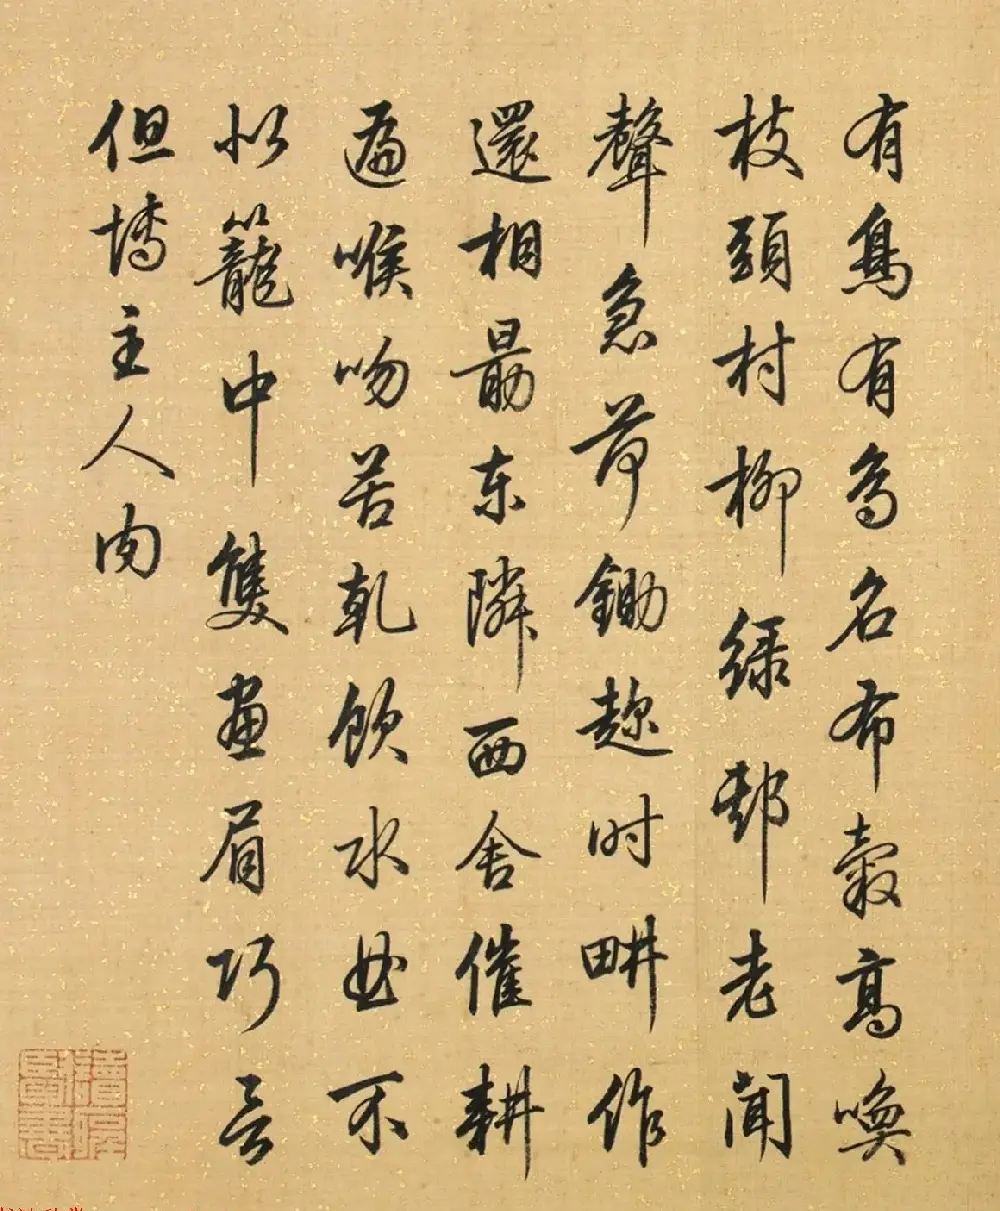 有鳥有鳥名布穀高喚
枝頭村柳綠老聞
聲急荷鋤趂时畊作
還相勗东隣西舍催耕
遍喉吻苦乾飲水曲不
似籠中雙畫眉巧言
但主人肉